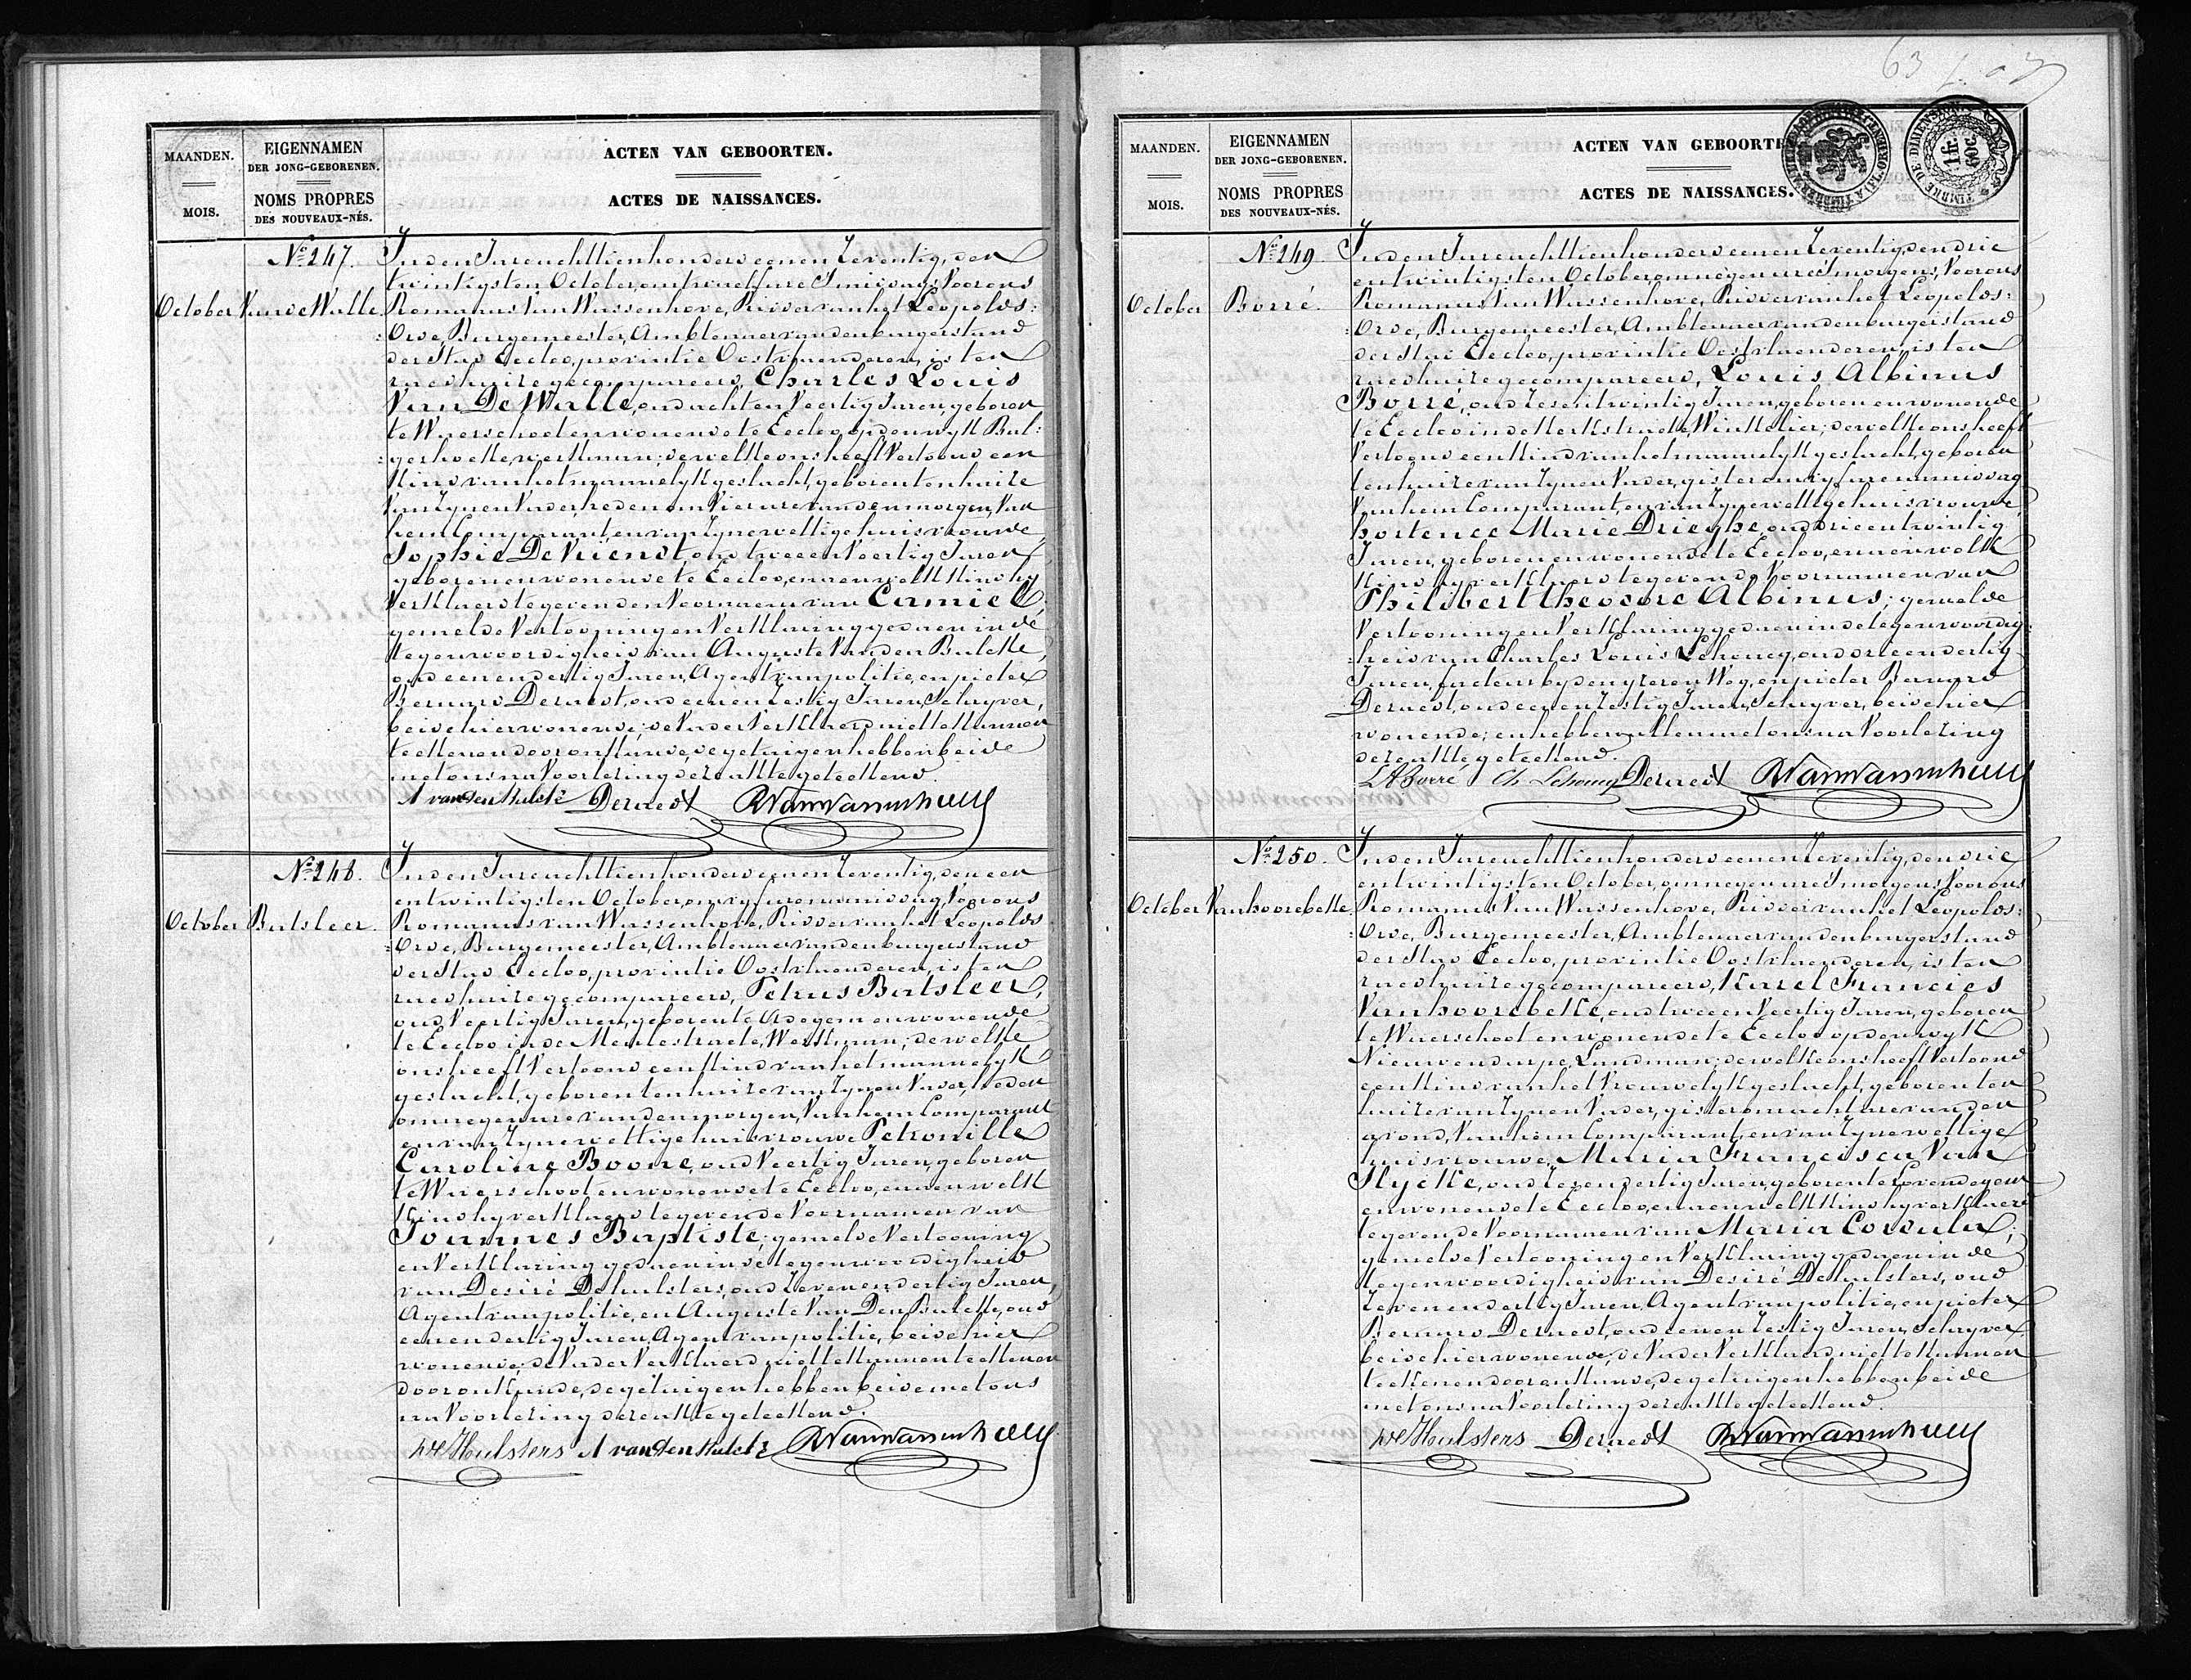 63
MAANDEN.
MOIS.
EIGENNAMEN
DER JONG-GEBORENEN.
NOMS PROPRES
DES NOUVEAUX-NÉS.
ACTEN VAN GEBOORTEN.
ACTES DE NAISSANCES.
No. 247.
October Van de Walle.
In den Jare achttienhonderd een en Zeventig, den
twintigsten October, om twaelf ure 's middags, Voor ons
Romanus Van Wassenhove, Ridder van het Leopolds-
-Orde, Burgemeester, Ambtenaer van den burgerstand
der Stad Eecloo, provintie Oostvlaenderen, is ten
raedhuize gecompareerd, Charles Louis
Van De Walle, oud acht en Veertig Jaren, geboren
te Waerschoot en wonende te Eecloo, op den wyk Bal-
-gerhoeke, werkman; dewelke ons heeft Vertoond een
Kind van het mannelyk geslacht, geboren ten huize
Van Zynen Vader, heden om Vier ure van den morgen, Van
hem Comparant en van Zyne wettige huisvrouwe
Sophie De Vriendt, oud twee en Veertig Jaren,
geboren en wonende te Eecloo, en aen welk Kind hy
Verklaerd te geven den Voornaem van Camiel;
gemelde Vertooning en Verklaring gedaen in de
tegenwoordigheid van Auguste Van den Bulcke,
oud een en dertig Jaren, Agent van politie, en pieter
Bernard Deraedt, oud een en Zestig Jaren, Schryver,
beide hier wonende; de Vader Verklaerd niet te kunnen
teekenen door onkunde, de getuigen hebben beide
met ons na Voorlezing dezer akte geteekend.
A van den Bulcke Deraedt RVanWassenhove
No. 248.
October Batsleer.
In den Jare achttienhonderd een en Zeventig, den een
en twintigsten October, om vyf ure namiddag, Voor ons
Romanus van Wassenhove, Ridder van het Leopolds
-Orde, Burgemeester, Ambtenaer van den burgerstand
der Stad Eecloo, provintie Oostvlaenderen, is ten
raedhuize gecompareerd, Petrus Batsleer,
oud Veertig Jaren, geboren te Adegem en wonende
te Eecloo in de Meulestraete, Werkman; dewelke
ons heeft Vertoond een Kind van het mannelyk
geslacht, geboren ten huize van Zynen Vader, heden
om negen ure van den morgen, Van hem Comparant
en van Zyne wettige huisvrouwe Petronille
Caroline Boone, oud Veertig Jaren, geboren
te Waerschoot en wonende te Eecloo, en aen welk
Kind hy verklaerd te geven de Voornamen van
Joannes Baptiste; gemelde Vertooning
en Verklaring gedaen in de tegenwoordigheid
van Desiré Dehulsters, oud Zeven en dertig Jaren,
Agent van politie, en Auguste Van Den Bulcke, oud
een en dertig Jaren, Agent van politie, beide hier
wonende; de Vader Verklaerd niet te kunnen teekenen
door onkunde, de getuigen hebben beide met ons
na Voorlezing dezer akte geteekend.
De Hulsters A van den Bulcke RVanWassenhove
MAANDEN.
MOIS.
EIGENNAMEN
DER JONG-GEBORENEN.
NOMS PROPRES
DES NOUVEAUX-NÉS.
ACTEN VAN GEBOORTE
ACTES DE NAISSANCES.
TIMBRE DE DIMENSION.
1 fr. 60c.
No. 249
October Borré.
In den Jare achttienhonderd een en Zeventig, den drie
en twintigsten October, om negen ure 's morgens, Voor ons
Romanus Van Wassenhove, Ridder van het Leopolds-
-Orde, Burgemeester, Ambtenaer van den burgerstand
der Stad Eecloo, provintie Oostvlaenderen, is ten
raedhuize gecompareerd, Louis Albinus
Borré, oud Zes en twintig Jaren, geboren en wonende
te Eecloo in de Kerkstraete, Winkelier; dewelke ons heeft
Vertoond een Kind van het mannelyk geslacht, geboren
ten huize van Zynen Vader, gister om vyf ure namiddag
Van hem Comparant, en van Zyne wettige huisvrouwe,
hortence Marie Drieghe, oud drie en twintig
Jaren, geboren en wonende te Eecloo, en aen welk
Kind hy verklaerd te geven de Voornamen van
Philibert theodore Albinus; gemelde
Vertooning en Verklaring gedaen in de tegenwoordig-
-heid van Charles Louis Schoucq, oud drie en dertig
Jaren, facteur by den yzeren Weg, en pieter Bernard
Deraedt, oud een en Zestig Jaren, Schryver, beide hier
wonende; en hebben allen met ons na Voorlezing
dezer akte geteekend.
LABorré Ch Schoucq Deraedt RVanWassenhove
No. 250.
October Vanhoorebeke.
In den Jare achttienhonderd een en Zeventig, den drie
en twintigsten October, om negen ure 's morgens, Voor ons
Romanus Van Wassenhove, Ridder van het Leopolds-
-Orde, Burgemeester, Ambtenaer van den burgerstand
der Stad Eecloo, provintie Oostvlaenderen, is ten
raedhuize gecompareerd, Karel Francies
Vanhoorebeke, oud twee en Veertig Jaren, geboren
te Waerschoot en wonende te Eecloo op den wyk
Nieuwendorpe, Landman; dewelke ons heeft Vertoond
een Kind van het Vrouwelyk geslacht, geboren ten
huize van Zynen Vader, gister om acht ure van den
avond, Van hem Comparant, en van Zyne wettige
huisvrouwe, Maria Francisca Van
Hyfte, oud Zes en dertig Jaren, geboren te Lovendegem
en wonende te Eecloo, en aen welk Kind hy verklaerd
te geven de Voornamen van Maria Cordula;
gemelde Vertooning en Verklaring gedaen in de
tegenwoordigheid van Desiré Dehulsters, oud
Zeven en dertig Jaren, Agent van politie, en pieter
Bernard Deraedt, oud een en Zestig Jaren, Schryver
beide hier wonende, de Vader Verklaerd niet te kunnen
teekenen door onkunde, de getuigen hebben beide
met ons na Voorlezing dezer akte geteekend.
De Hulsters Deraedt RVanWassenhove